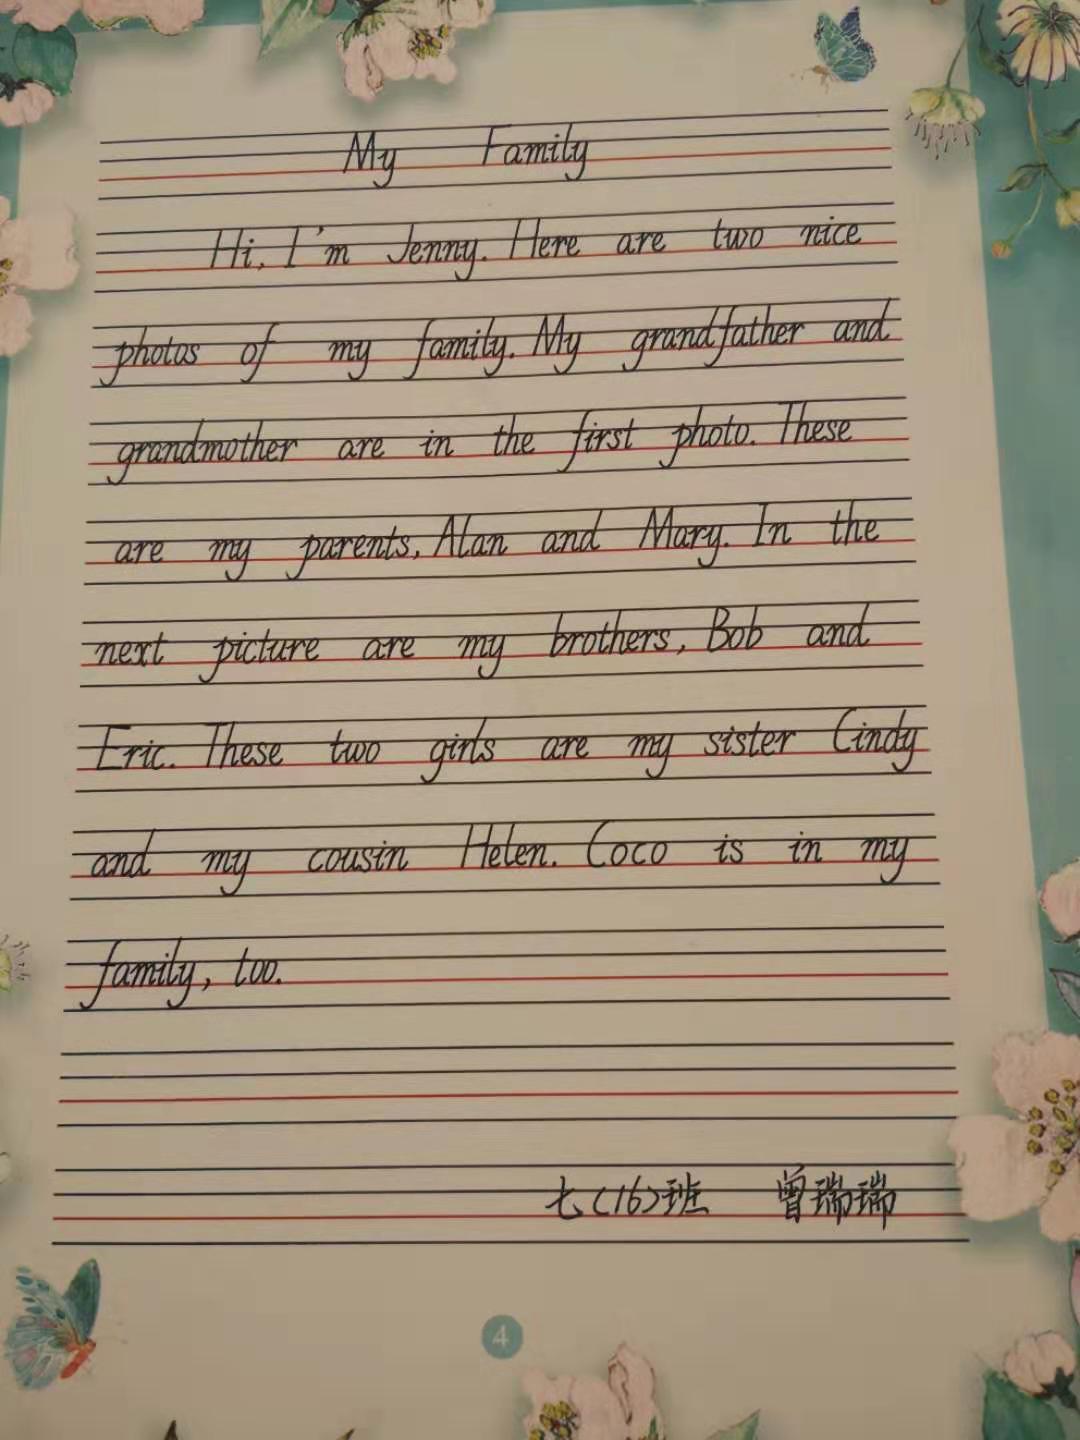 My Family
Hi, I'm Jenny. Here are two nice
photos of my family. My grandfather and
grandmother are in the first photo. These
are my parents, Alan and Mary. In the
next picture are my brothers, Bob and
Eric. These two girls are my sister Cindy
and my cousin Helen. Coco is in my
family, too.
七(16)班 曾瑞瑞
4